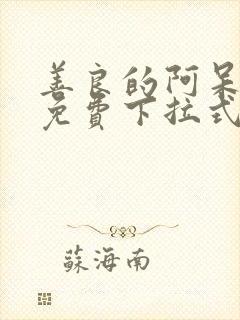 善良的阿呆
免費下拉式
蘇海南